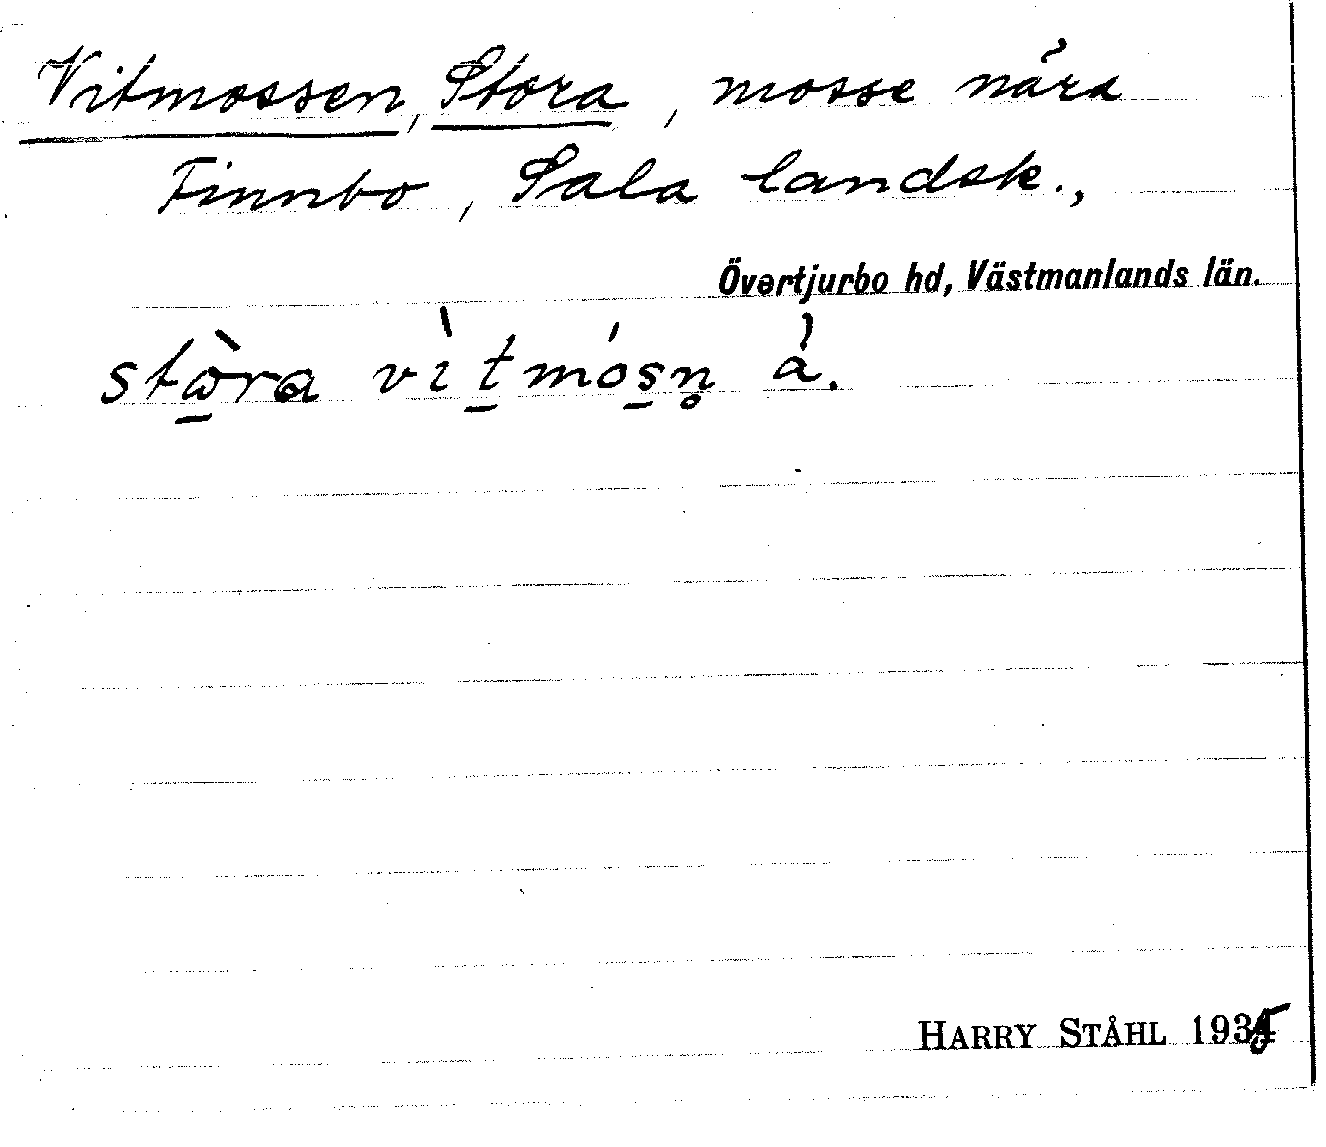 Vitmossen, Stora, mosse nära
Finnbo, Sala landsk.,
Övertjurbo hd, Västmanlands län.
stὼ̱ra vìt̲mós̲n̥ å̀.
HARRY STÅHL 1935